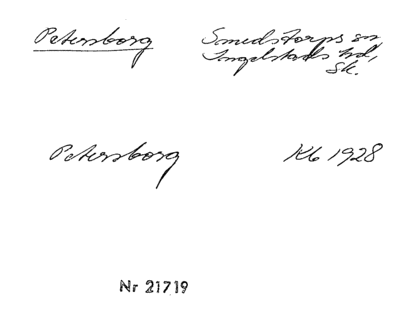 Petersborg
Smedstorps sn
Ingelstads hd,
Sk.
Petersborg
Kb 1928
Nr 21719